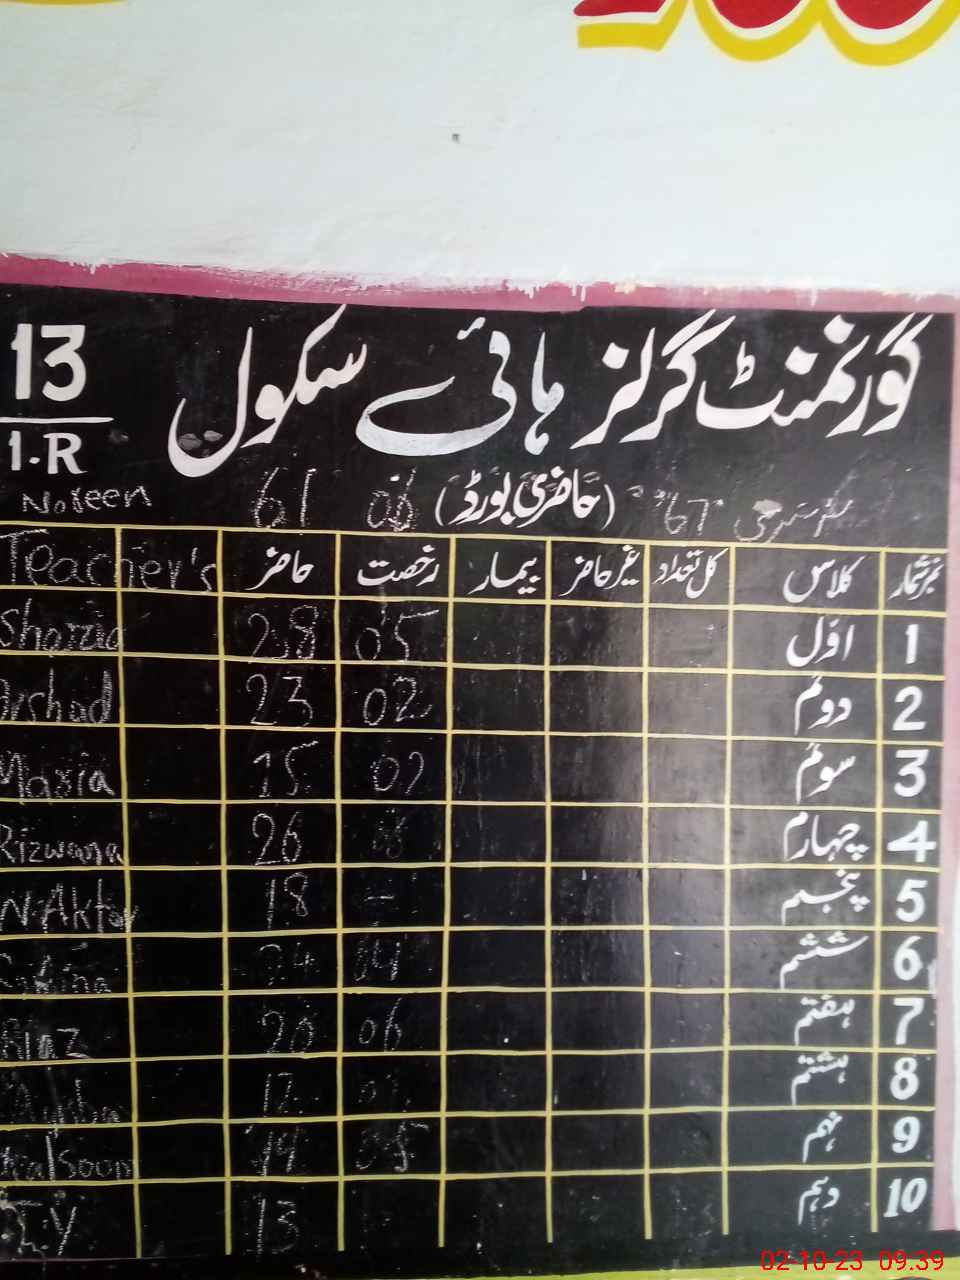 گورنمنٹ گرلز ہائے سکول 13
1.R
67 (حاضری بورڈ) 06 61 Noreen
نمبر شمار کلاس کل تعداد غیر حاضر بیمار رخصت حاضر Teacher's
1 اوّل 05 28 Shazia
2 دوئم 02 23 Arshad
3 سوئم 02 15 Maria
4 چہارم 26 Rizwana
5 پنجم - 18 N.Aktar
6 ششم 04 24
7 ہفتم 06 20
8 ہشتم 12
9 نہم 05 Kalsoom
10 دہم 13
02-10-23 09:39